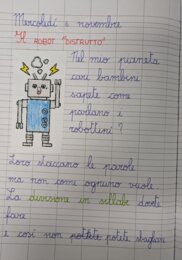 Mercoledì 2 novembre
IL ROBOT "DISTRUTTO"
Nel mio pianeta
cari bambini
sapete come
parlano i
robottini?
Loro staccano le parole
ma non come ognuno vuole
La divisione in sillabe dovete
fare
e così non potete sbagliare